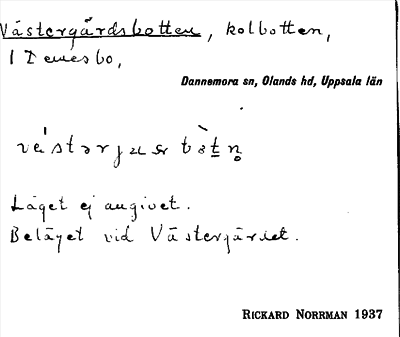 Västergårdsbotten, kolbotten,
i Demesbo,
Dannemora sn, Olands hd, Uppsala län
Läget ej angivet.
Beläget vid Västergärdet.
RICKARD NORRMAN 1937